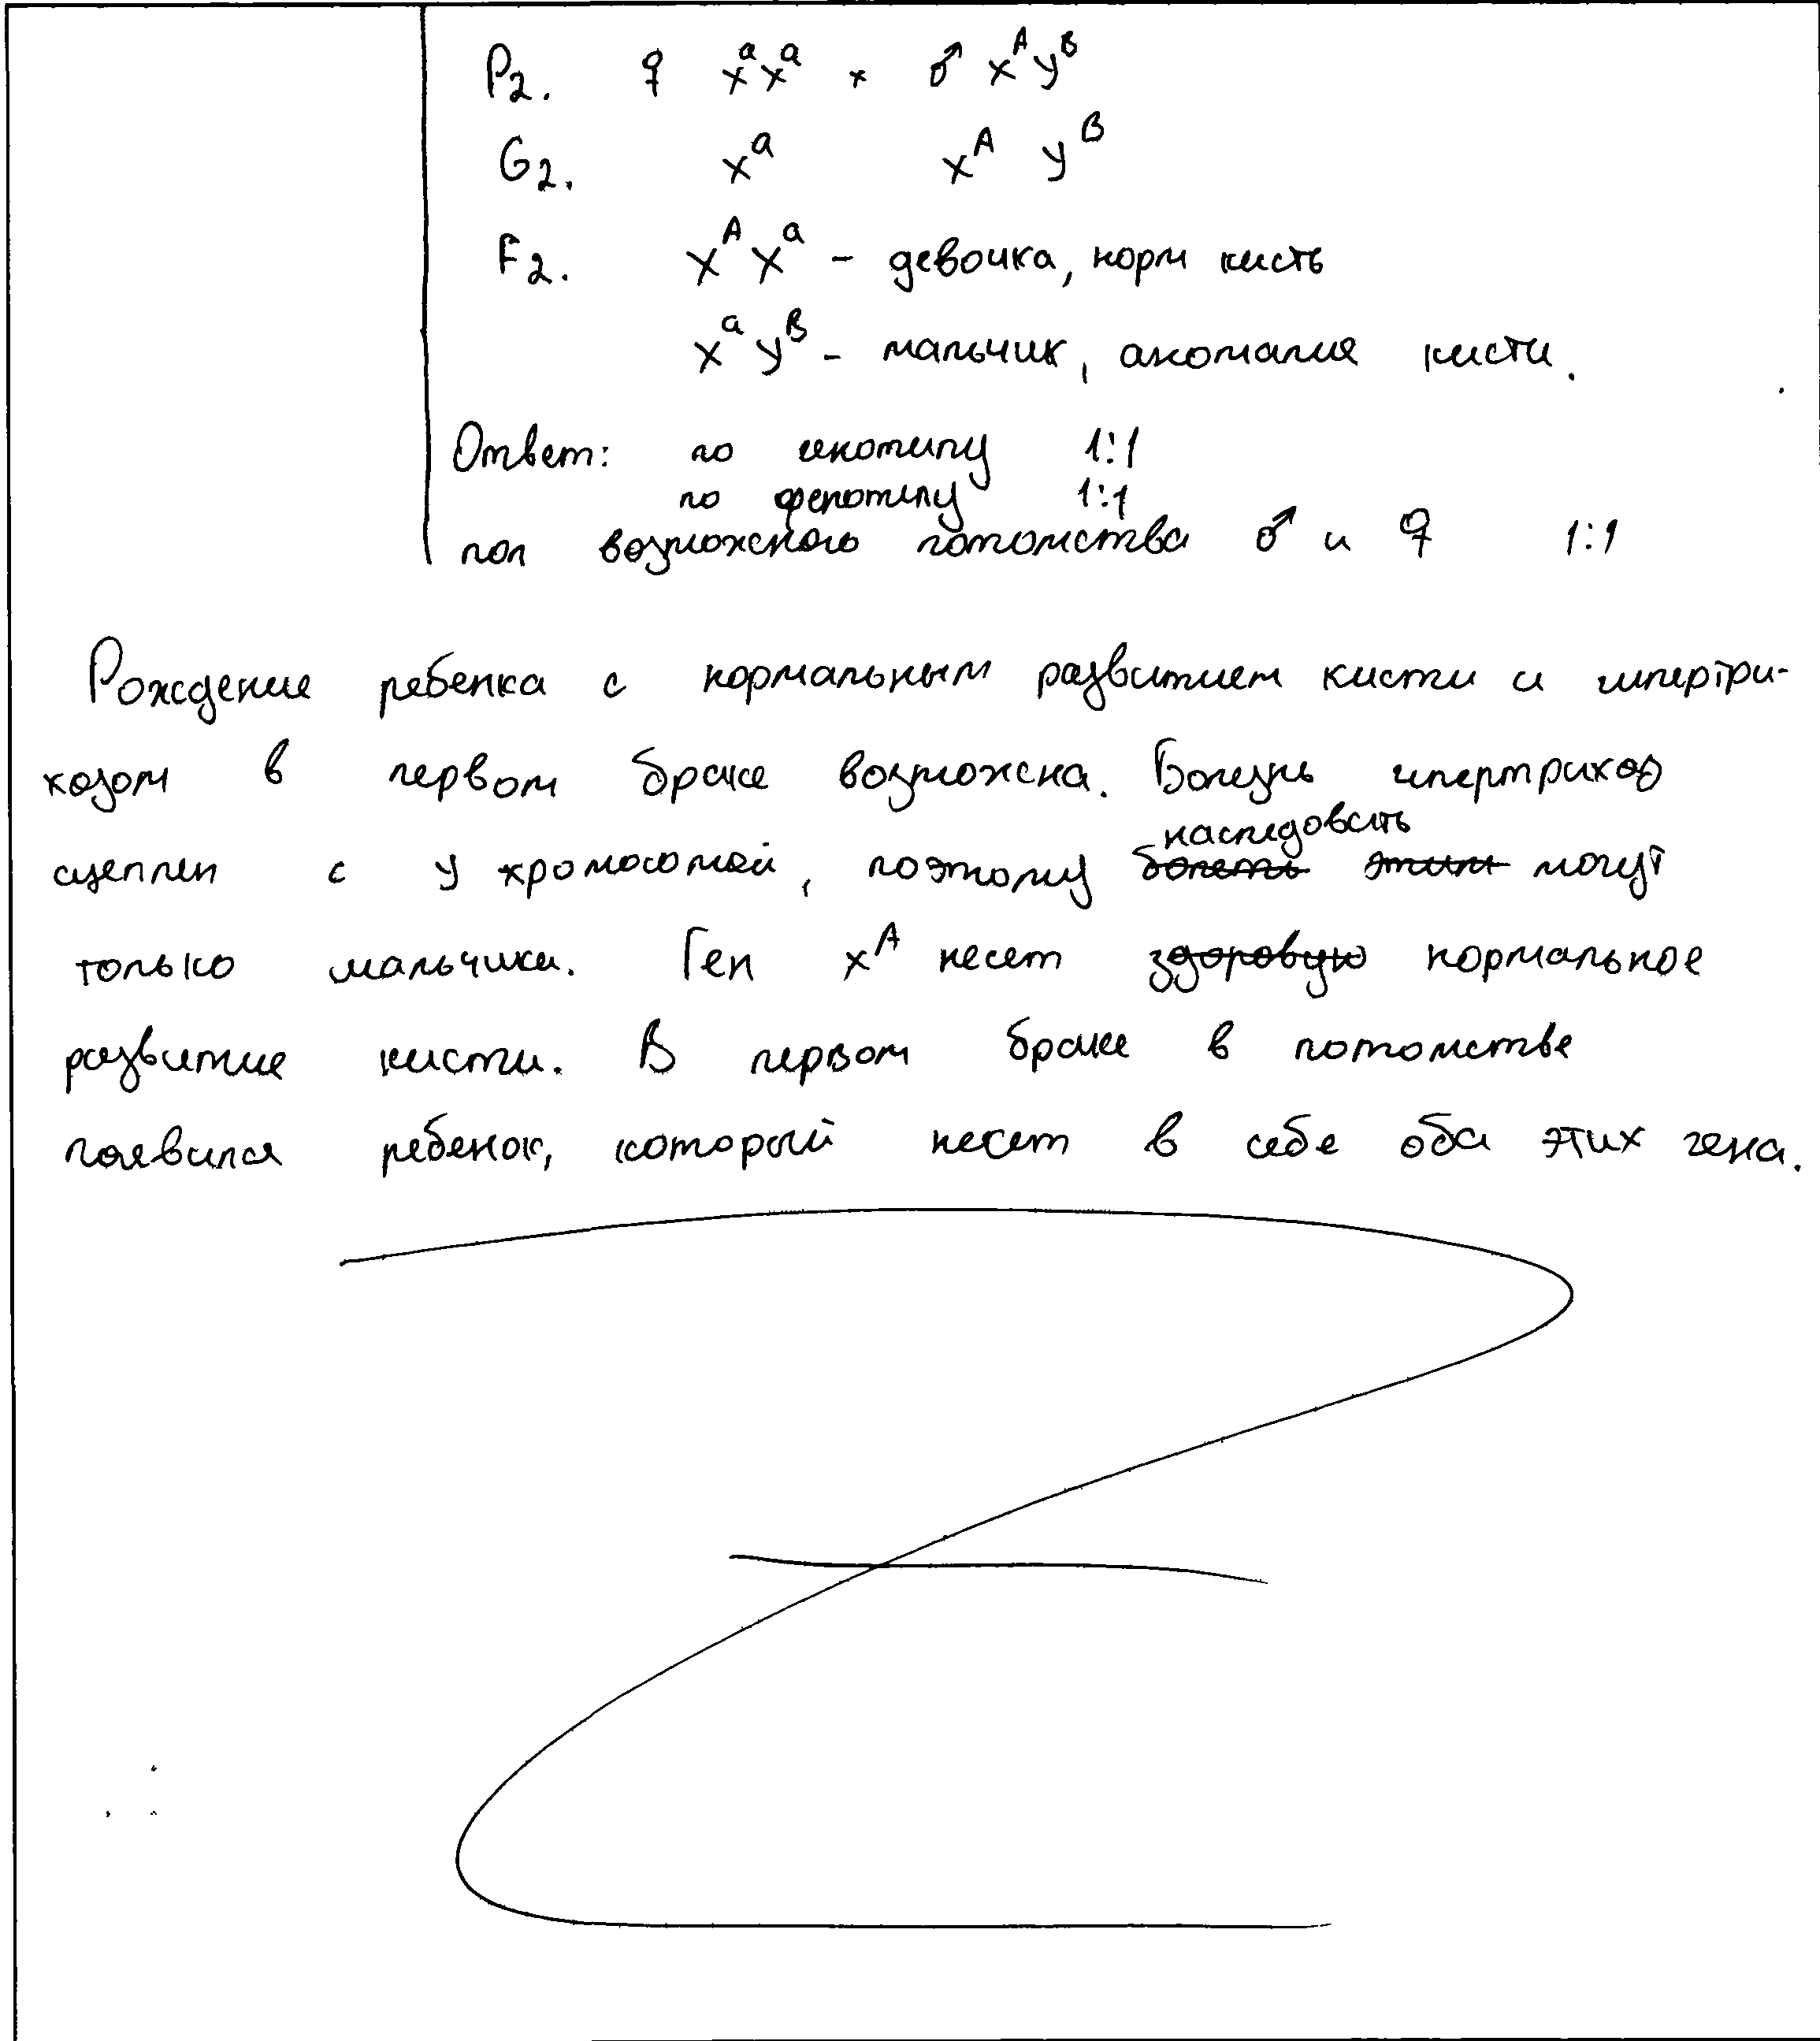 P₂. ♀ xᵃxᵃ × ♂ xᴬyᴮ
G₂. xᵃ xᴬ yᴮ
F₂. xᴬxᵃ - девочка, норм кисть
xᵃyᴮ - мальчик, аномалия кисти.
Ответ: по генотипу 1:1
по фенотипу 1:1
пол возможного потомства ♂ и ♀ 1:1
Рождение ребенка с нормальным развитием кисти и гипертри-
хозом в первом браке возможна. Болезнь гипертрихоз
наследовать
сцеплен с y хромосомой, поэтому ~~болеть~~ ~~этим~~ могут
только мальчики. Ген xᴬ несет ~~здоровую~~ нормальное
развитие кисти. В первом браке в потомстве
появился ребенок, который несет в себе оба этих гена.